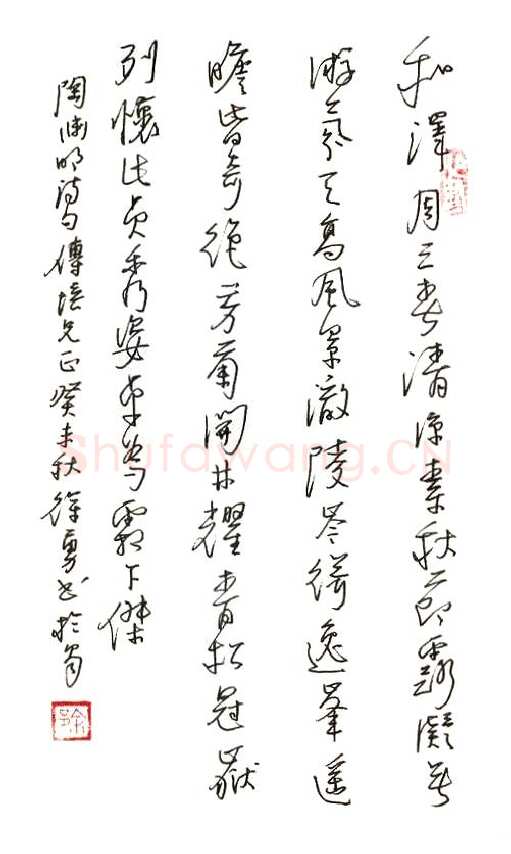 和澤周三春清涼素秋節露凝無
游氛天高風景澈陵岑聳逸峯遥
瞻皆奇絕芳菊開林耀青松冠巖
列懷此貞秀姿卓為霜下傑
陶淵明詩句傳培兄正癸未秋徐勇書於蜀
Shufawang.CN